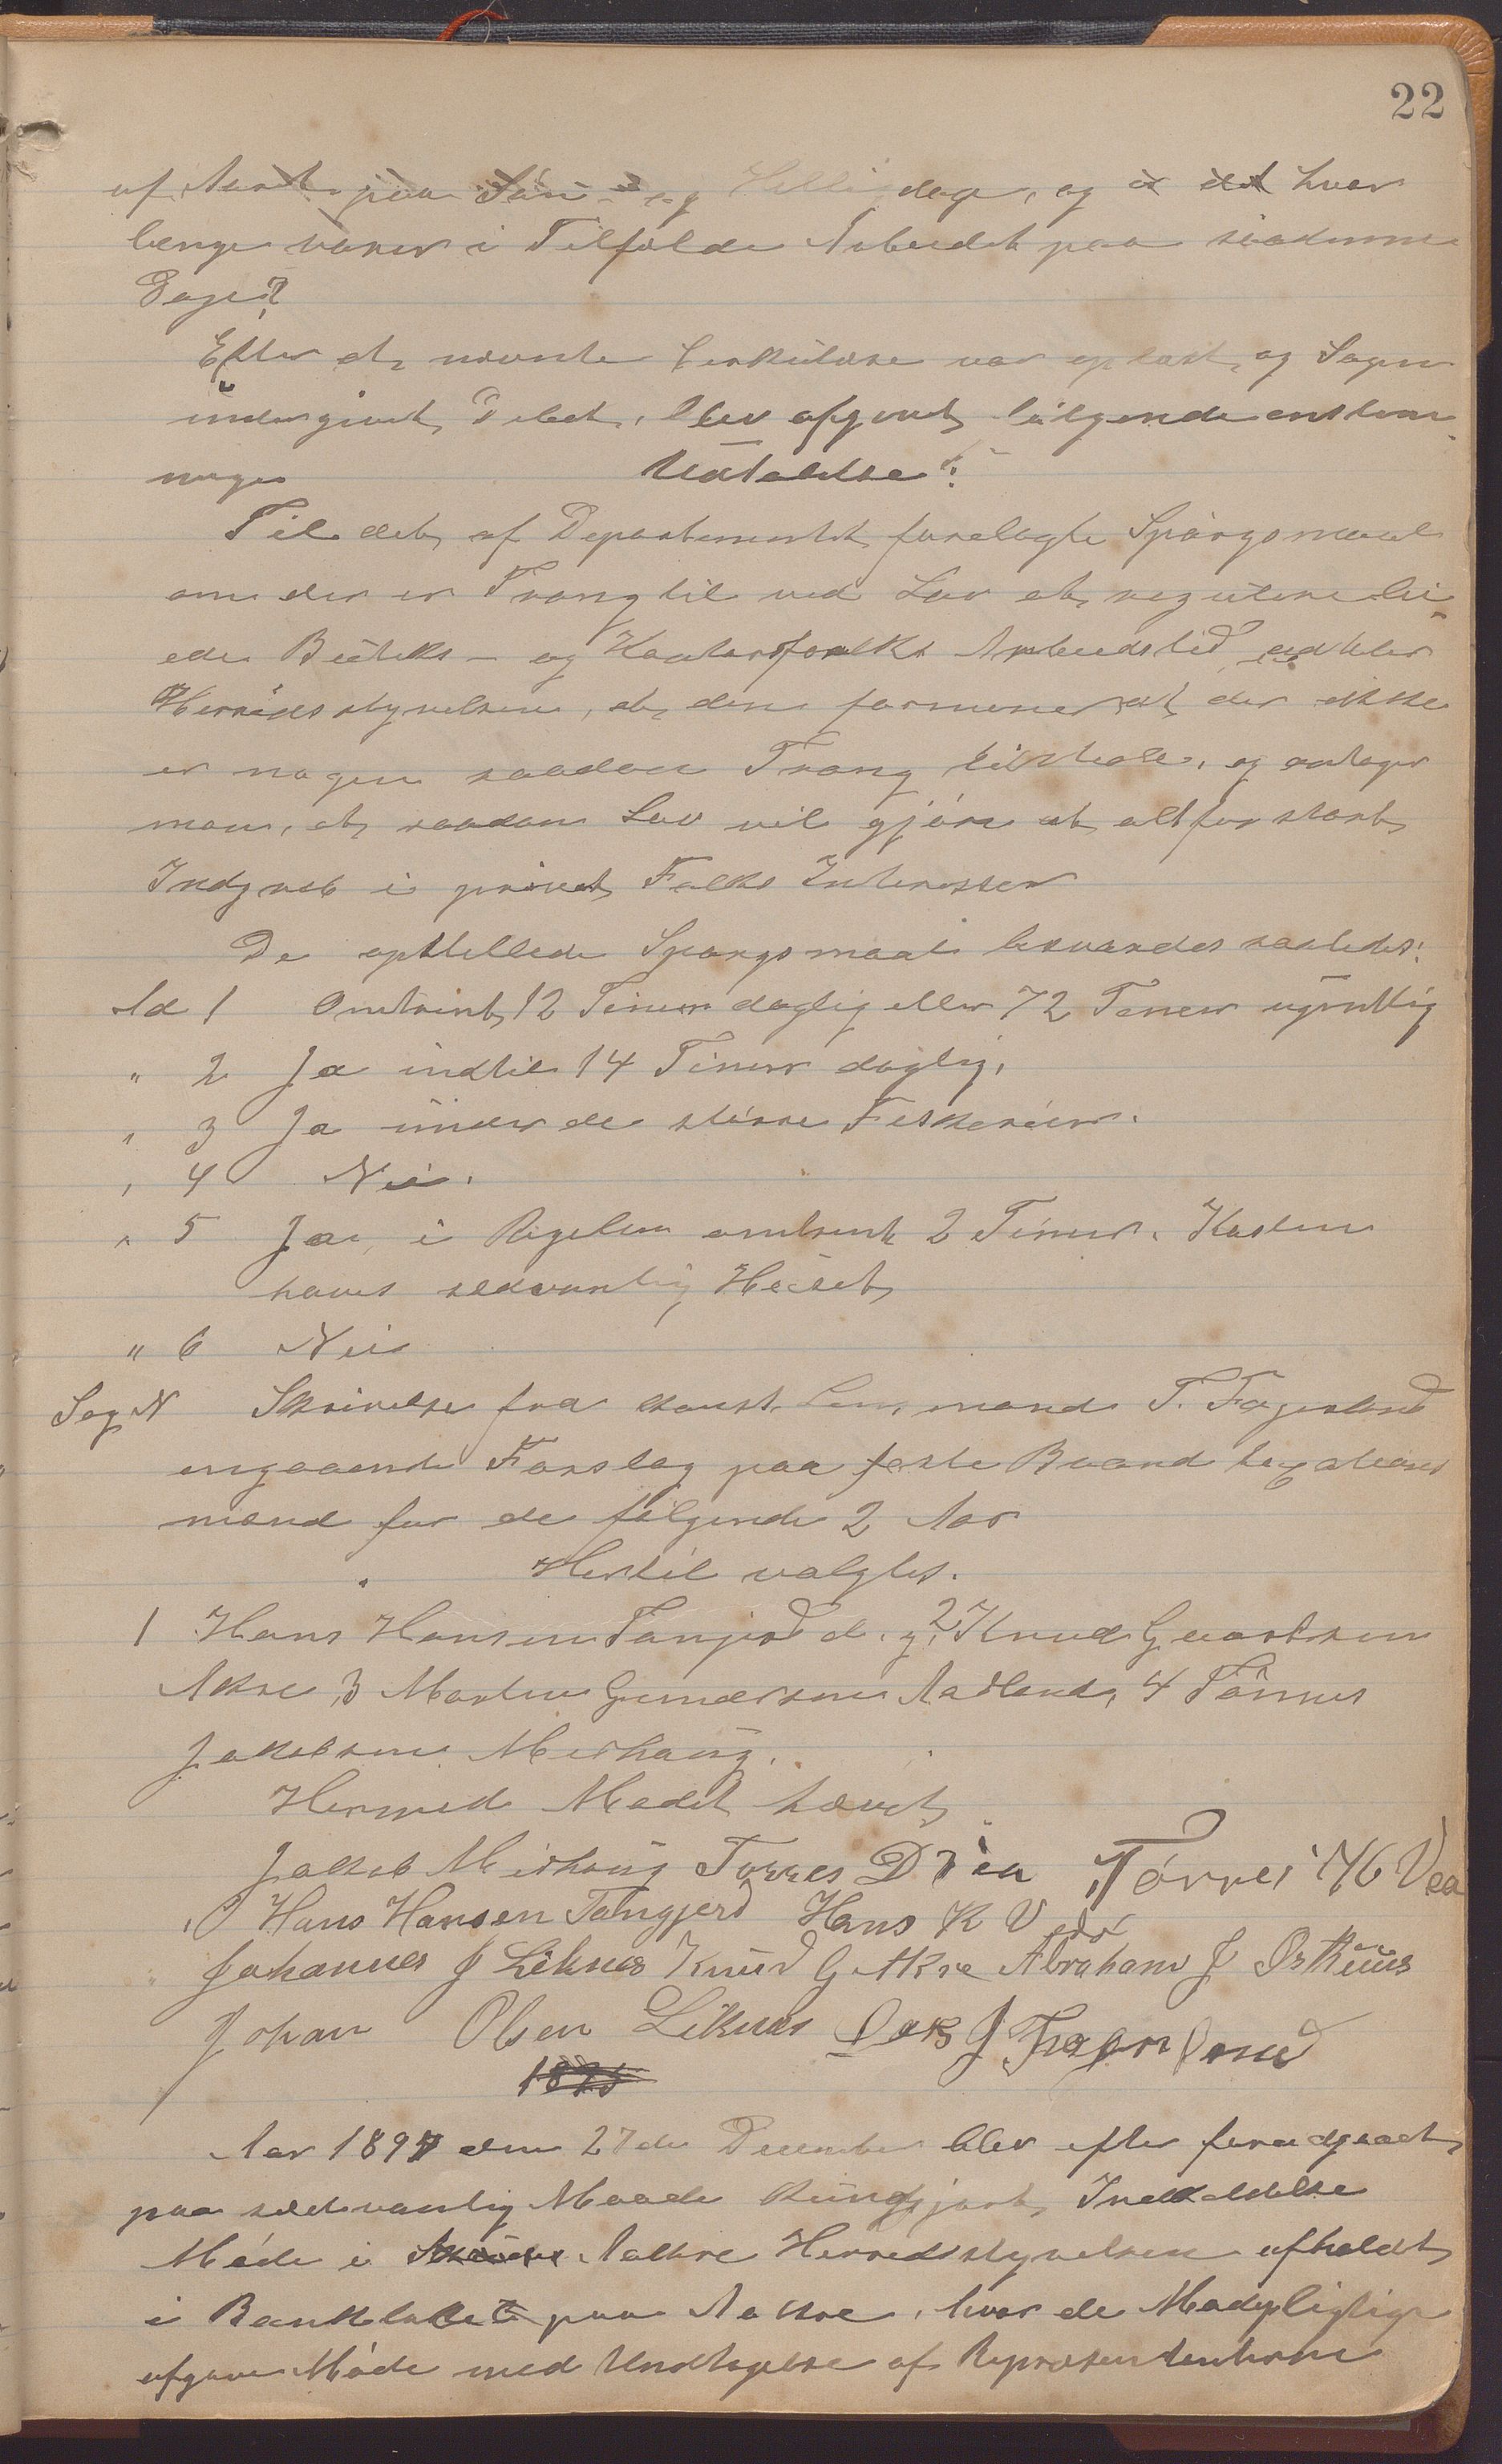 22
af Aaret paa Søn- og Helligdage, og i det hvor
længe varer i Tilfælde Arbeidet paa saadanne
Dage?
Efter at nævnte Cirkulære var oplæst, og Sagen
undergivet Debat, blev afgivet følgende enstem-
mige Udtalelse:
Til det af Departementet forelagte Spørgsmaal
om der er Trang til ved Lov at regulere
Butiks- og Kontorfolks Arbeidstid udtaler
Herredsstyrelsen, at den formener at der ikke
er nogen saadan Trang tilstede, og antager
man, at saadan Lov vil gjøre et altfor stort
Indgreb i privat Folks Interesser
De opstillede Spørgsmaal besvaredes saaledes:
Ad 1 Omtrint 12 Timer daglig eller 72 Timer ugentlig
" 2 Ja indtil 14 Timer daglig.
" 3 Ja under de større Fiskerier.
" 4 Nei.
" 5 Ja, i Regelen omtrent 2 Timer. Kosten
haves sedvanlig i Huset
" 6 Nei
Sag N Skrivelse fra konst. Lensmand T. Fagerland
angaaende Forslag paa faste
mænd for de følgende 2 Aar
Hertil valgtes.
1 Hans Hansen Tangjerd d. y. 2 Knud Gaardsen
Akre, 3 Morten Gundersen Aadland, 4 Tørres
Jakobsen Midhaug.
Hermed Mødet hævet
Jakob Midhaug Torres D Vea Tørres K Vea
Hans Hansen Tangjerd Hans K Vedø
Johannes J Liknes Knud G Akre Abraham J Østhuus
Johan Olsen Liknes Lars J Fagerland
1895
Aar 1897 den 27de December blev efter foradgaaet
paa sedvanlig Maade kundgjort Indkaldelse
Møde i Aakre Herredsstyrelsen afholdt
i Banklokalet paa Aakre, hvor de Mødepligtige
afgave Møde med Undtagelse af Repræsentanterne